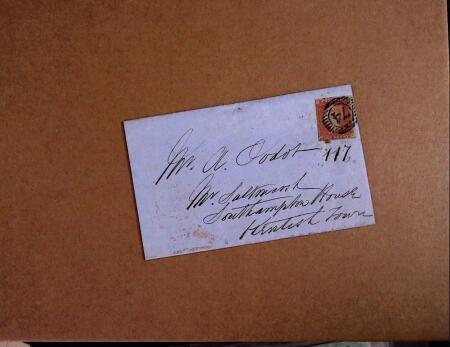 Mr. A. Godot
117
Mr. Saltmarsh
Southampton House
Kentish Town
74